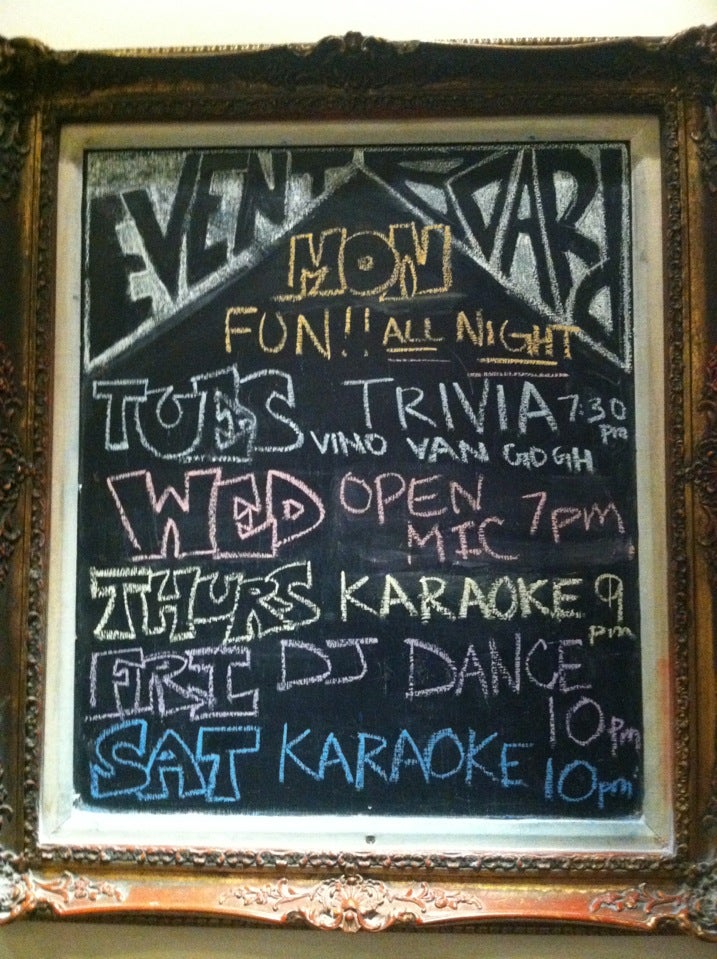 EVENT BOARD
MON
FUN!! ALL NIGHT
TUES TRIVIA 7:30 pm
VINO VAN GOGH
WED OPEN MIC 7pm
THURS KARAOKE 9 pm
FRI DJ DANCE 10pm
SAT KARAOKE 10pm